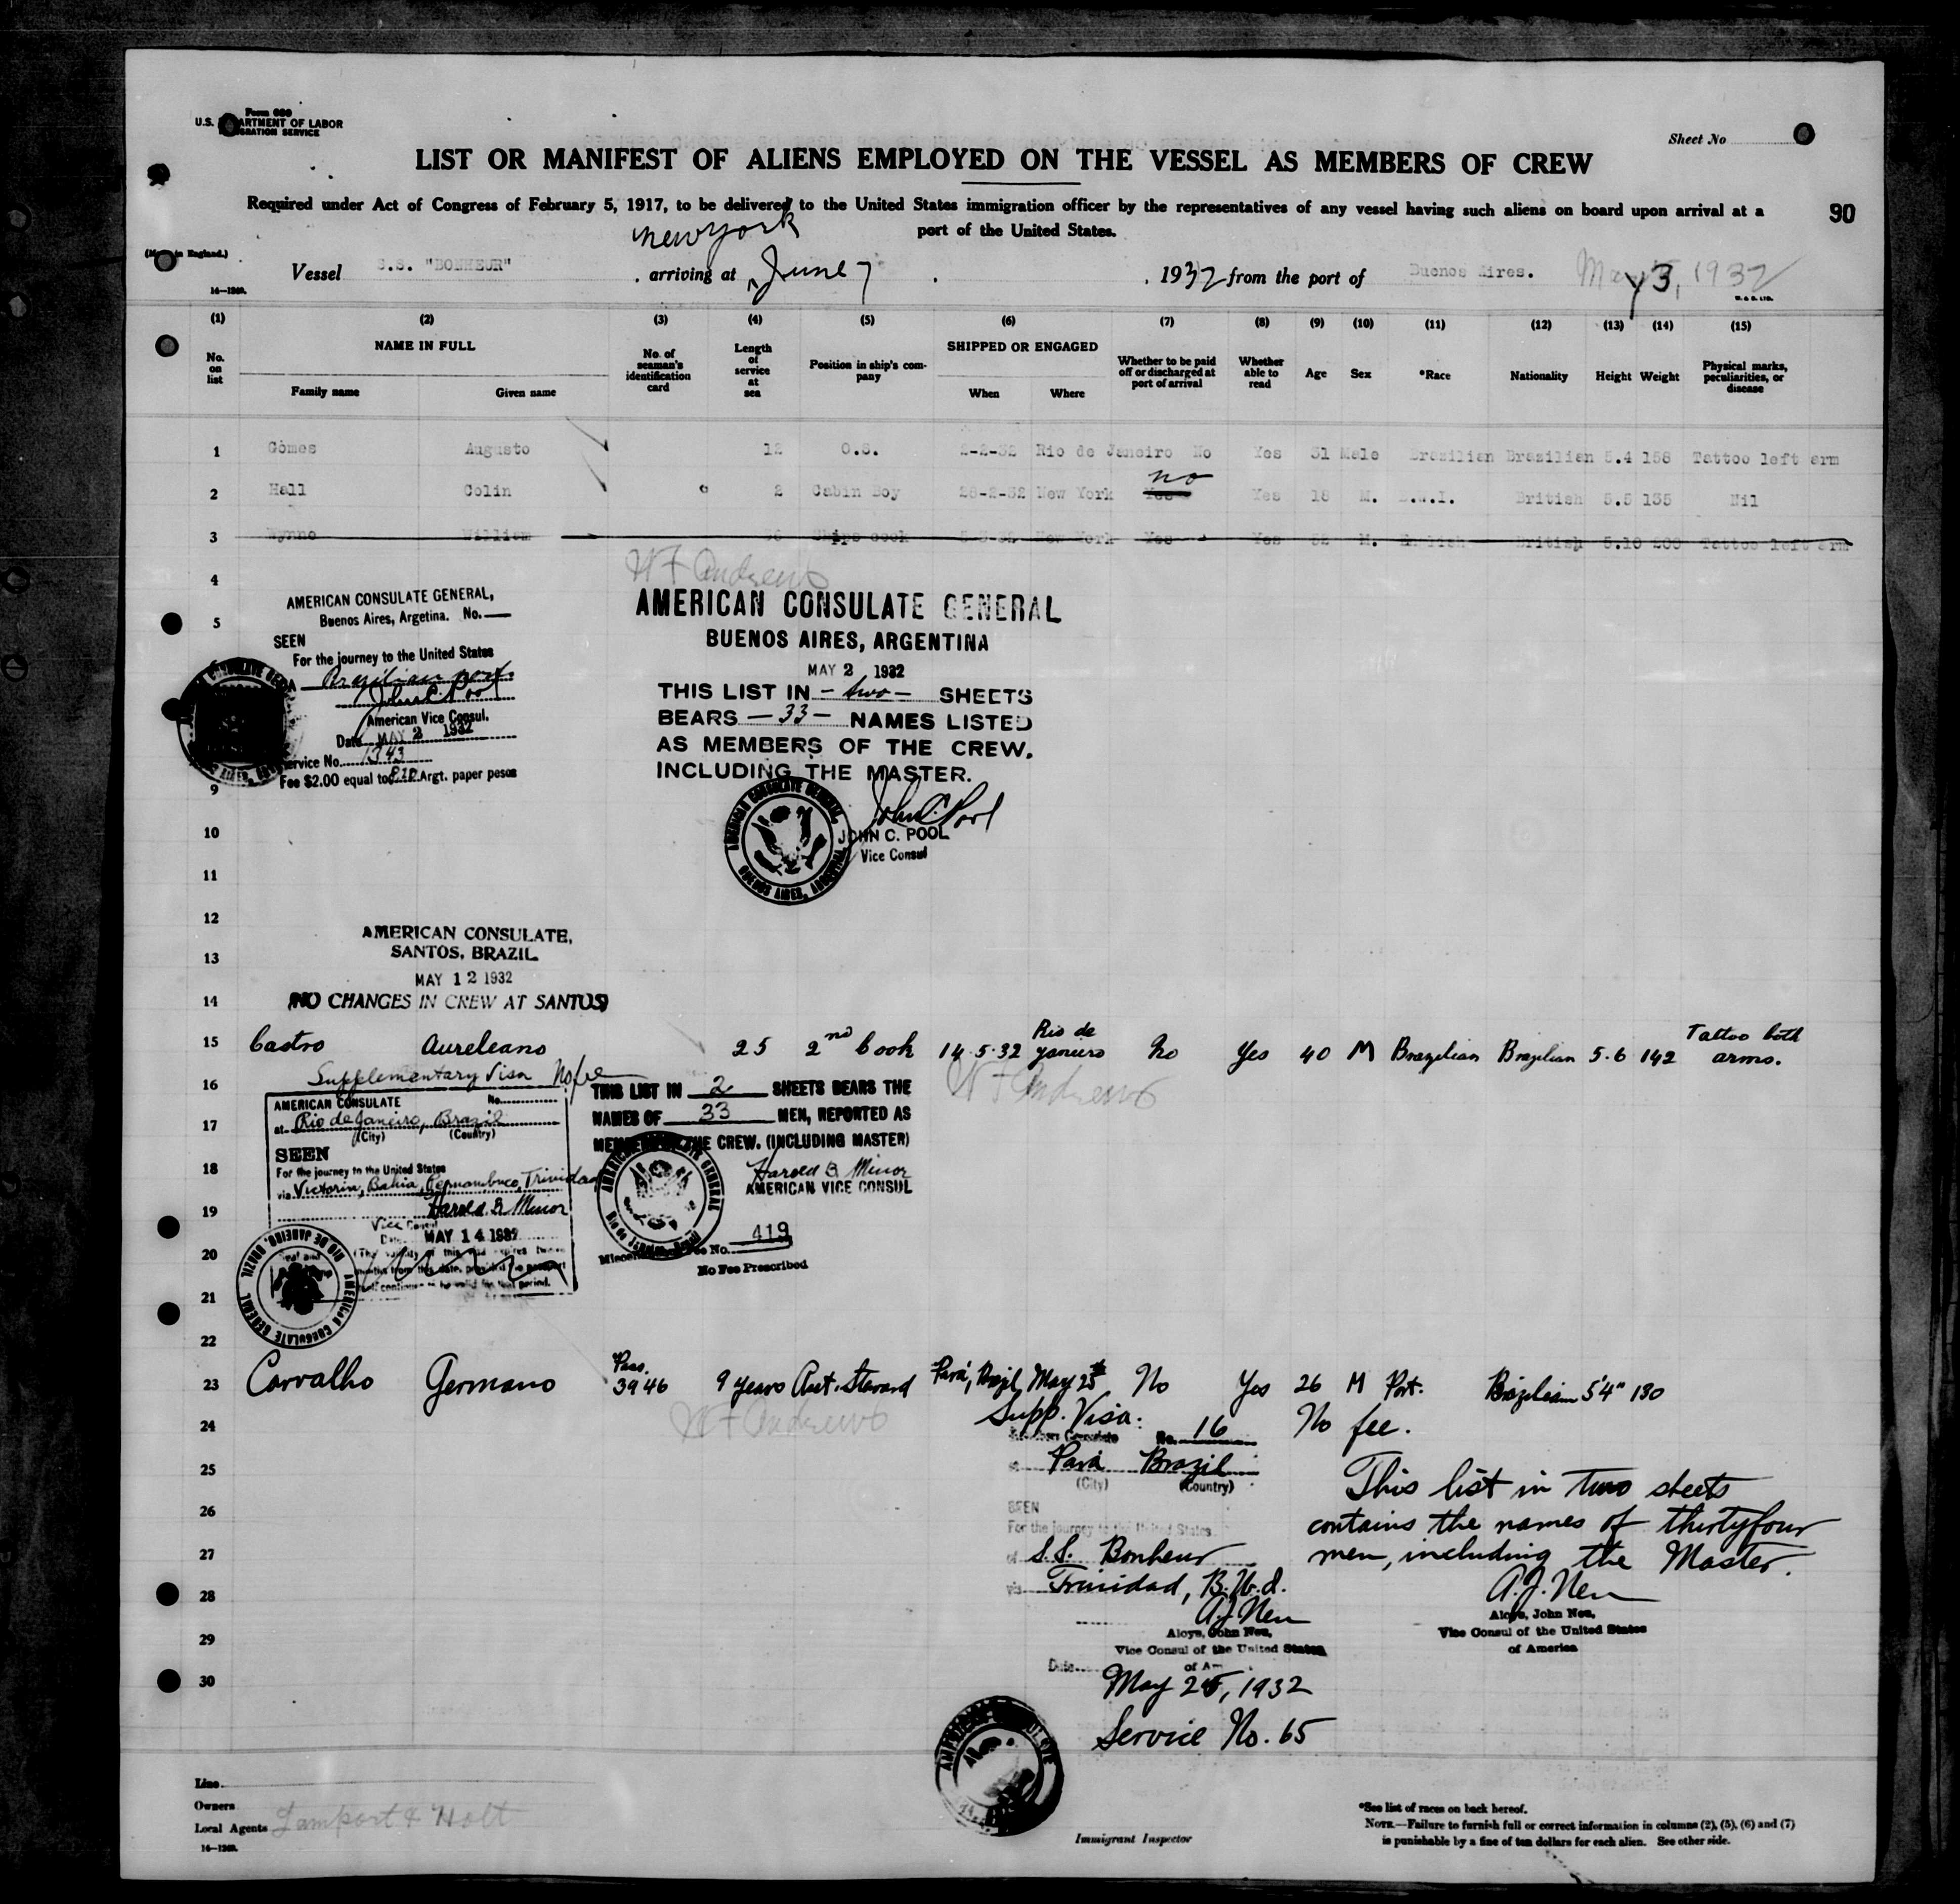 Form 680
U.S. DEPARTMENT OF LABOR
IMMIGRATION SERVICE
Sheet No
LIST OR MANIFEST OF ALIENS EMPLOYED ON THE VESSEL AS MEMBERS OF CREW
Required under Act of Congress of February 5, 1917, to be delivered to the United States immigration officer by the representatives of any vessel having such aliens on board upon arrival at a
port of the United States.
90
New York
Vessel S.S. "BONHEUR" , arriving at June 7 , 1932 from the port of Buenos Aires. May 3, 1932
14—1240.
(1) (2) (3) (4) (5) (6) (7) (8) (9) (10) (11) (12) (13) (14) (15)
No. on list NAME IN FULL Family name Given name No. of seaman's identification card Length of service at sea Position in ship's company SHIPPED OR ENGAGED When Where Whether to be paid off or discharged at port of arrival Whether able to read Age Sex *Race Nationality Height Weight Physical marks, peculiarities, or disease
1 Gomes Augusto 12 O.S. 2-2-32 Rio de Janeiro No Yes 31 Male Brazilian Brazilian 5.4 158 Tattoo left arm
no
2 Hall Colin 2 Cabin Boy 28-2-32 New York Yes Yes 18 M. British 5.5 135 Nil
3 Wynne William Ships cook New York Yes Yes 52 M. English British 5.10 200 Tattoo left arm
W F Andrews
4
5
AMERICAN CONSULATE GENERAL,
Buenos Aires, Argetina. No.
SEEN
For the journey to the United States
Brazilian port
John C Pool
American Vice Consul.
Date MAY 2 1932
Service No. 1343
Fee $2.00 equal to Argt. paper pesos
AMERICAN CONSULATE GENERAL
BUENOS AIRES, ARGENTINA
MAY 2 1932
THIS LIST IN - two - SHEETS
BEARS - 33 - NAMES LISTED
AS MEMBERS OF THE CREW.
INCLUDING THE MASTER.
John C. Pool
JOHN C. POOL
Vice Consul
AMERICAN CONSULATE GENERAL, BUENOS AIRES, ARGENTINA
9
10
11
12
13
14
AMERICAN CONSULATE,
SANTOS, BRAZIL
MAY 12 1932
(NO CHANGES IN CREW AT SANTOS)
15 Castro Aureleano 25 2nd Cook 14.5.32 Rio de Janeiro No Yes 40 M Brazilian Brazilian 5.6 142 Tattoo both arms.
W F Andrews
Supplementary Visa No fee
16
17
18
19
20
21
22
AMERICAN CONSULATE No.
at Rio de Janeiro, Brazil
(City) (Country)
SEEN
For the journey to the United States
via Victoria, Bahia, Pernambuco, Trinidad
Harold B Minor
Vice Consul
MAY 14 1932
AMERICAN CONSULATE GENERAL RIO DE JANEIRO, BRAZIL
THIS LIST IN 2 SHEETS BEARS THE
NAMES OF 33 MEN, REPORTED AS
MEMBERS OF THE CREW. (INCLUDING MASTER)
Harold B Minor
AMERICAN VICE CONSUL
No. 419
No Fee Prescribed
23 Carvalho Germano Pass. 3946 9 years Asst. Steward Pará, Brazil, May 25th No Yes 26 M Port. Brazilian 5'4" 130
W F Andrews
24
25
26
27
28
29
30
Supp. Visa: No fee.
American Consulate No. 16
at Pará Brazil
(City) (Country)
SEEN
For the journey to the United States
of S.S. Bonheur
via Trinidad, B.W.I.
A.J. Neu
Aloys. John Neu,
Vice Consul of the United States
Date May 25, 1932
Service No. 65
This list in two sheets
contains the names of thirtyfour
men, including the Master.
A.J. Neu
Aloys. John Neu,
Vice Consul of the United States
of America
Line
Owners
Local Agents Lamport & Holt
14—1240.
Immigrant Inspector
*See list of races on back hereof.
NOTE.—Failure to furnish full or correct information in columns (2), (5), (6) and (7)
is punishable by a fine of ten dollars for each alien. See other side.